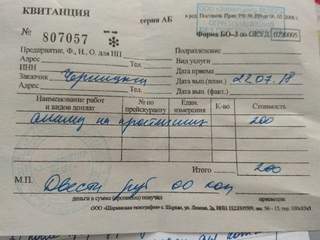 КВИТАНЦИЯ
серия АБ
№ 807057
Форма БО-3 по ОКУД 0700005
Предприятие, Ф., И., О. для ИП
Подразделение
Адрес Тел.
Вид услуги
Адрес ИНН
Дата приема
Заказчик
Дата вып.(план.) 22.07.18
Адрес Тел.
Дата вып. (факт.)
Наименование работ и видов доплат
№ по прейскуранту
Един. измерения
К-во
Стоимость
анализ на 200
Итого 200
М.П. Двести руб 00 коп
деньги в сумме (прописью) получил